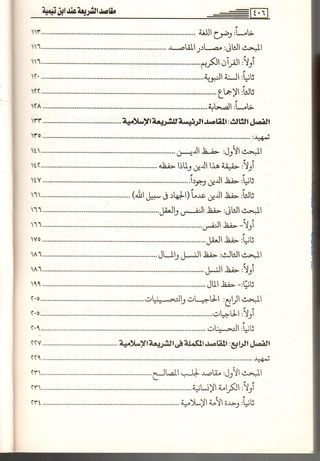 ٤٠٦ مقاصد الشريعة عند ابن تيمية
خامساً: وضوح اللغة ١١٣
المبحث الثاني: مصادر المقاصد ١١٦
أولاً: القرآن الكريم ١١٦
ثانياً: السنة النبوية ١٢٠
ثالثاً: الإجماع ١٢٢
خامساً: الصحابة ١٢٨
الفصل الثالث: المقاصد الرئيسة للشريعة الإسلامية ١٣٣
تمهيد: ١٣٥
المبحث الأول: حفظ الدين ١٤١
أولاً: حقيقة هذا الدين ولماذا حفظه ١٤٢
ثانياً: حفظ الدين وجوداً ١٤٧
ثالثاً: حفظ الدين عدماً (الجهاد في سبيل الله) ١٦١
المبحث الثاني: حفظ النفس والعقل ١٦٦
أولاً- حفظ النفس ١٦٦
ثانياً: حفظ العقل ١٧٥
المبحث الثالث: حفظ النسل والمال ١٨٦
أولاً: حفظ النسل ١٨٦
ثانيًا:- حفظ المال ١٩٩
المبحث الرابع: الحاجيات والتحسينيات ٢٠٥
أولاً: الحاجيات ٢٠٥
ثانياً: التحسينات ٢٠٩
الفصل الرابع: المقاصد المكملة في الشريعة الإسلامية ٢٢٧
تمهيد ٢٢٩
المبحث الأول: مقاصد لجلب المصالح ٢٣١
أولاً: الكرامة الإنسانية ٢٣١
ثانياً: وحدة الأمة الإسلامية ٢٣٤